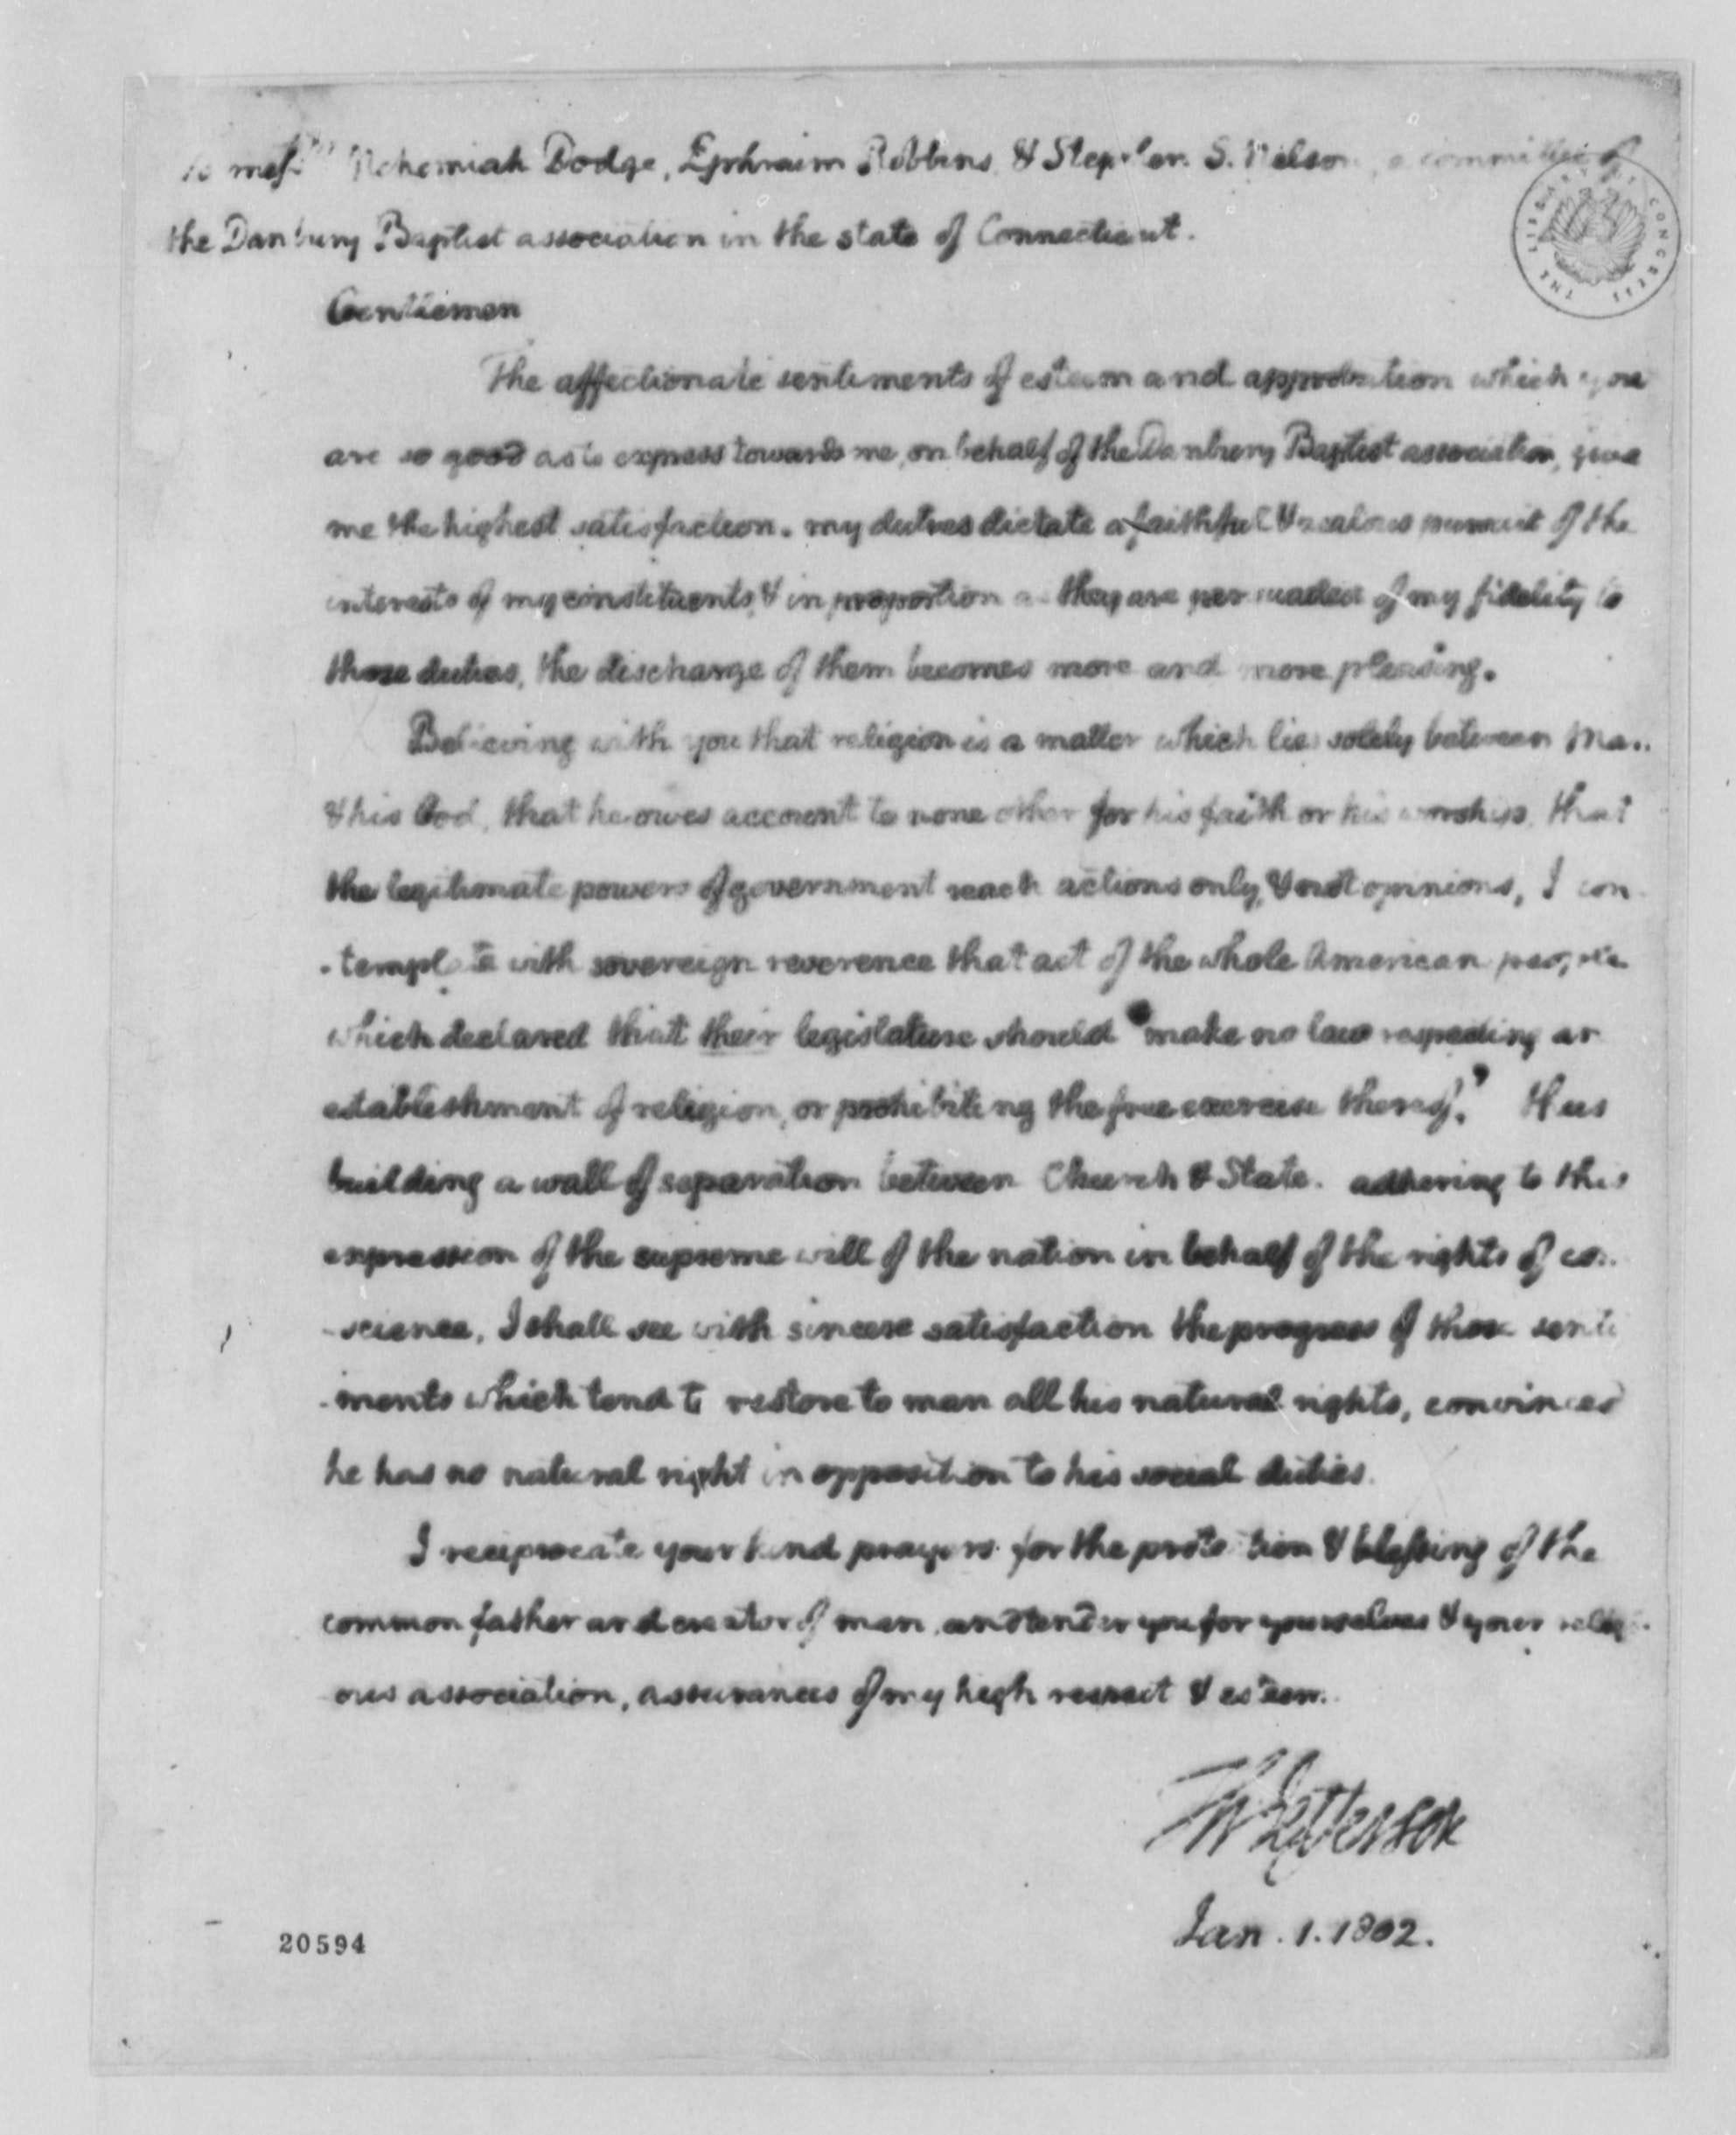 To mess.rs Nehemiah Dodge, Ephraim Robbins, & Stephen S. Nelson, a committee of
the Danbury Baptist association in the state of Connecticut.
THE LIBRARY OF CONGRESS
Gentlemen
The affectionate sentiments of esteem and approbation which you
are so good as to express towards me, on behalf of the Danbury Baptist association, give
me the highest satisfaction. my duties dictate a faithful & zealous pursuit of the
interests of my constituents, & in proportion as they are persuaded of my fidelity to
those duties, the discharge of them becomes more and more pleasing.
Believing with you that religion is a matter which lies solely between Man
& his God, that he owes account to none other for his faith or his worship, that
the legitimate powers of government reach actions only, & not opinions, I con
-template with sovereign reverence that act of the whole American people
which declared that their legislature should "make no law respecting an
establishment of religion, or prohibiting the free exercise thereof," thus
building a wall of separation between Church & State. adhering to this
expression of the supreme will of the nation in behalf of the rights of con
-science, I shall see with sincere satisfaction the progress of those senti
-ments which tend to restore to man all his natural rights, convinced
he has no natural right in opposition to his social duties.
I reciprocate your kind prayers for the protection & blessing of the
common father and creator of man, and tender you for yourselves & your religi
-ous association, assurances of my high respect & esteem.
Th Jefferson
Jan. 1. 1802.
20594